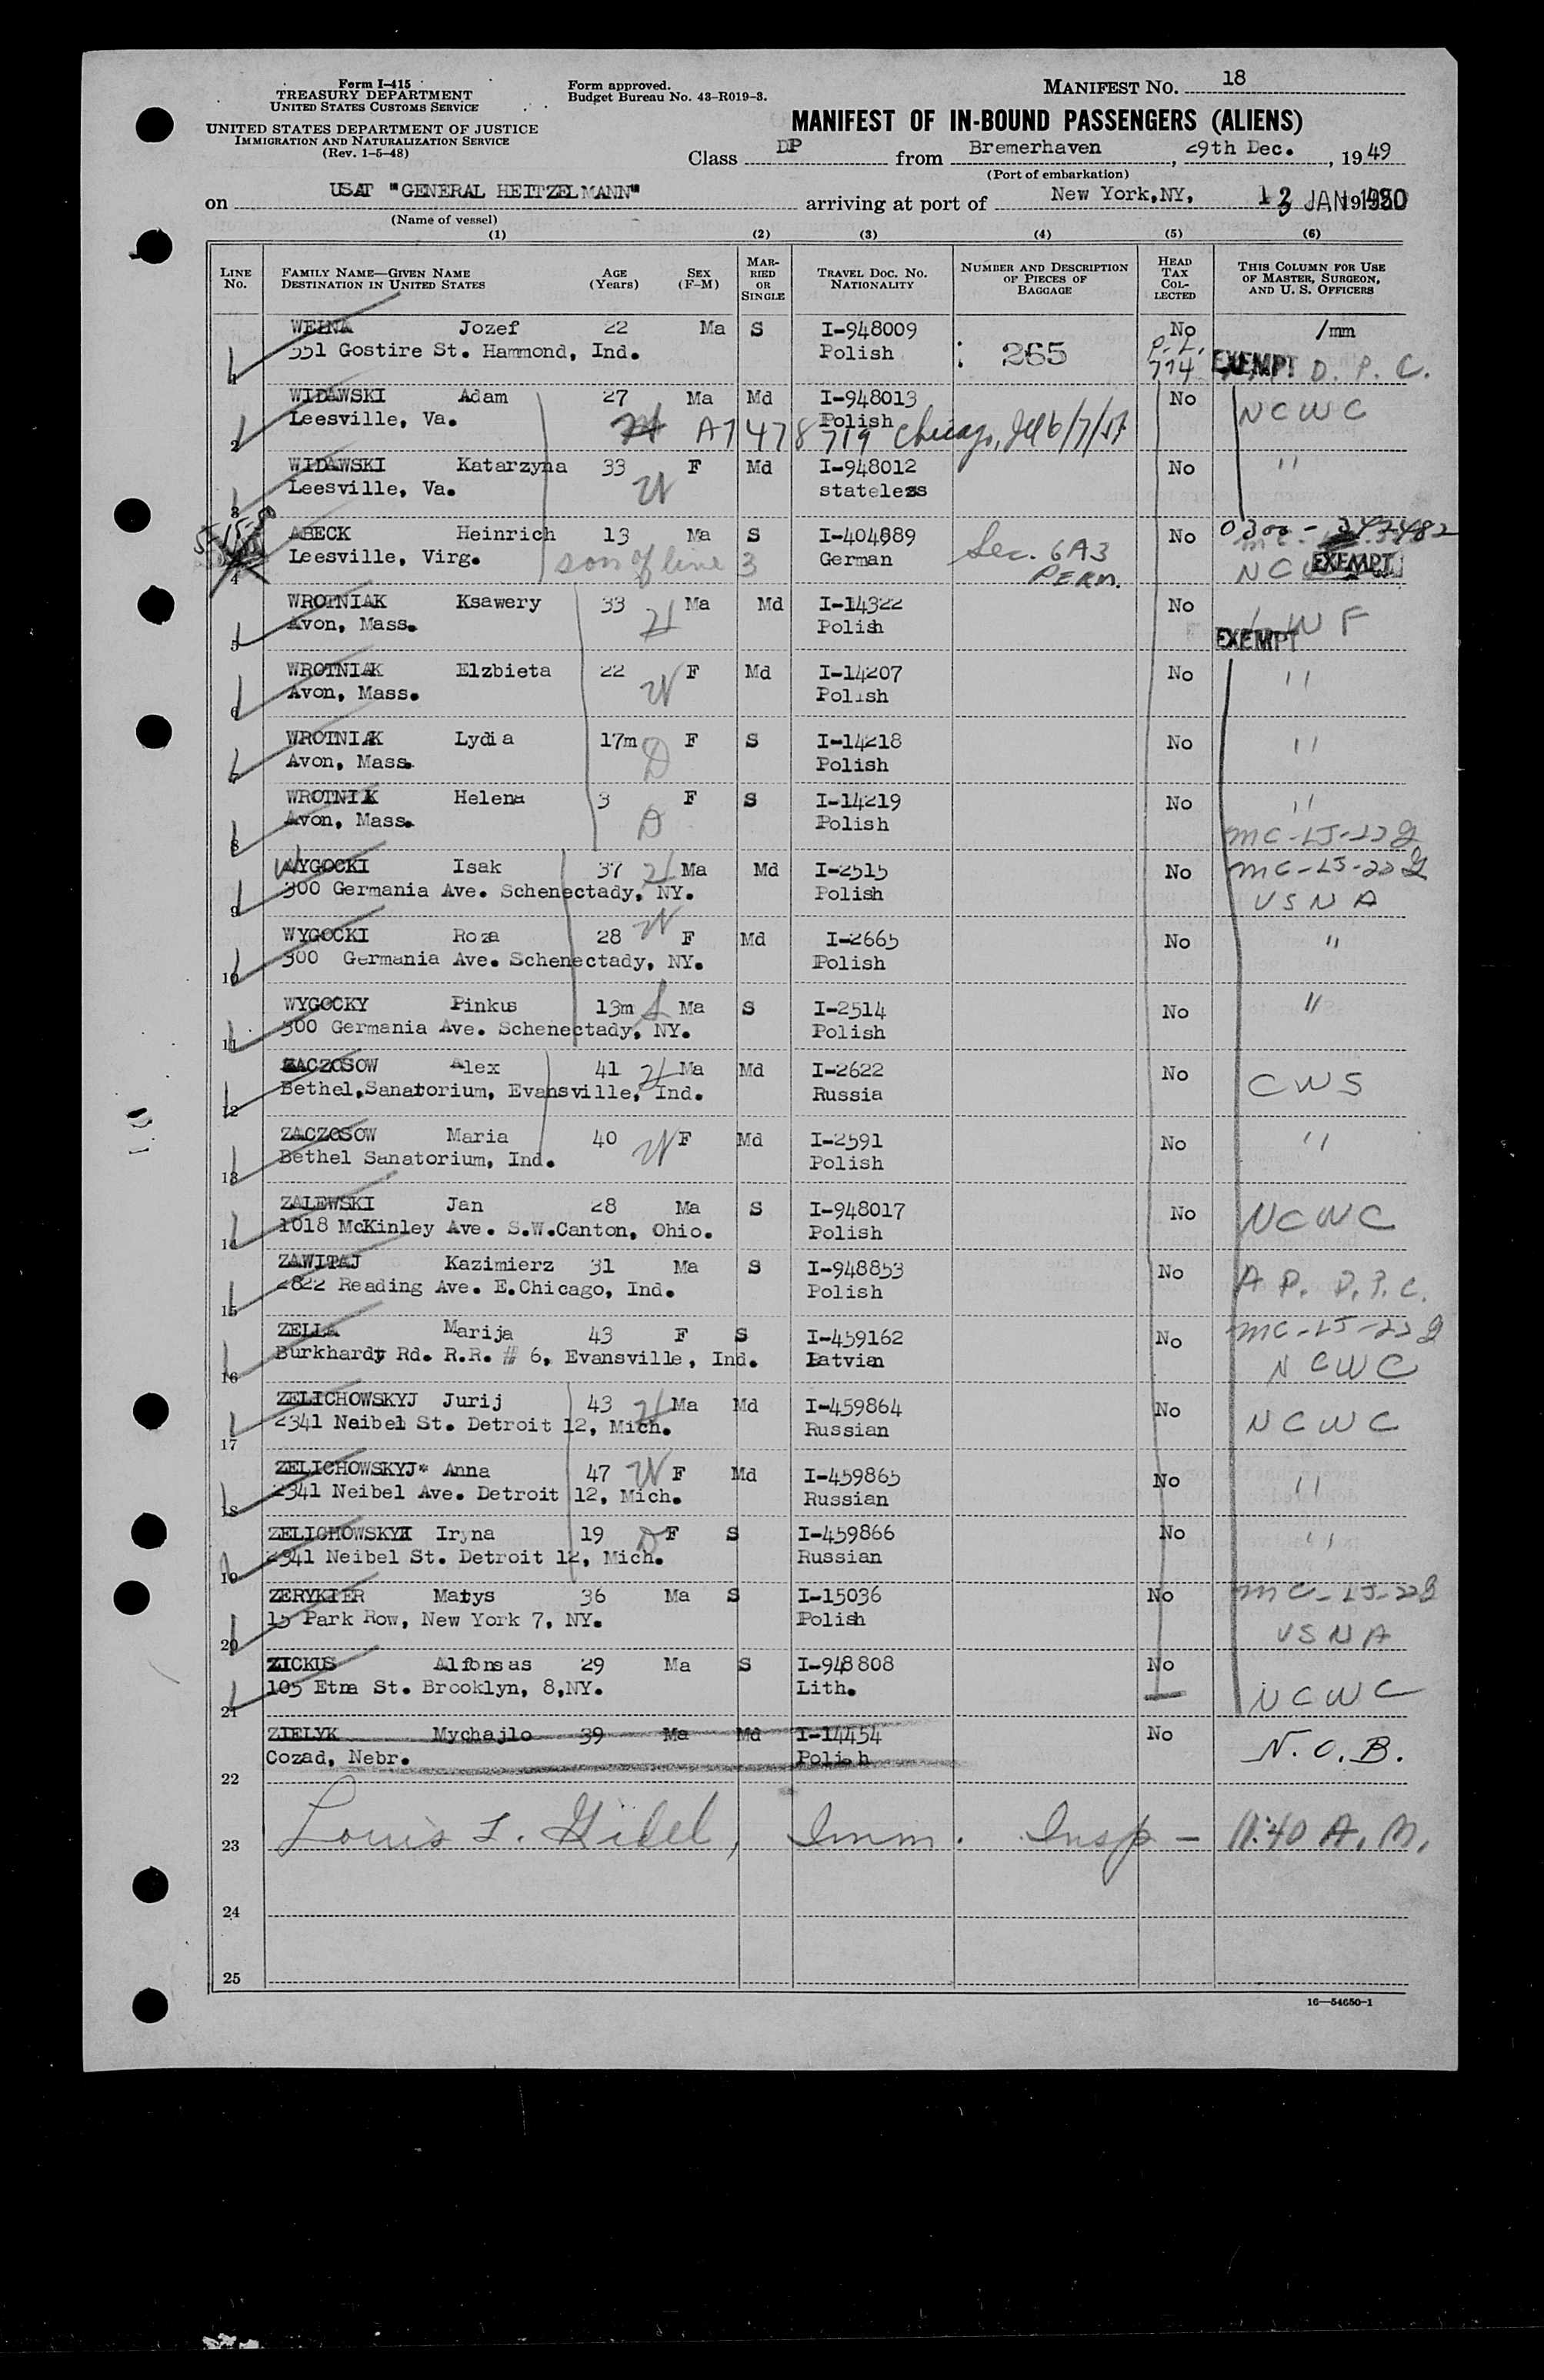 Form I-415
TREASURY DEPARTMENT
UNITED STATES CUSTOMS SERVICE
UNITED STATES DEPARTMENT OF JUSTICE
IMMIGRATION AND NATURALIZATION SERVICE
(Rev. 1-5-48)
Form approved.
Budget Bureau No. 43-R019-3.
MANIFEST NO. 18
MANIFEST OF IN-BOUND PASSENGERS (ALIENS)
Class DP from Bremerhaven, 29th Dec., 1949
(Port of embarkation)
on USAT "GENERAL HEITZELMANN" arriving at port of New York,NY, 13 JAN 1950
(Name of vessel)
(1) (2) (3) (4) (5) (6)
LINE NO. FAMILY NAME—GIVEN NAME DESTINATION IN UNITED STATES AGE (Years) SEX (F-M) MARRIED OR SINGLE TRAVEL DOC. NO. NATIONALITY NUMBER AND DESCRIPTION OF PIECES OF BAGGAGE HEAD TAX COLLECTED THIS COLUMN FOR USE OF MASTER, SURGEON, AND U. S. OFFICERS
WEINA Jozef 22 Ma S I-948009 No /mm
1 551 Gostire St. Hammond, Ind. Polish 265 P.L. 774 EXEMPT D. P. C.
WIDAWSKI Adam 27 Ma Md I-948013 No NCWC
2 Leesville, Va. Polish
A7 478 719 Chicago, Ill 6/7/57
WIDAWSKI Katarzyna 33 F Md I-948012 No "
3 Leesville, Va. W stateless
ABECK Heinrich 13 Ma S I-404889 No 0300-347482
4 Leesville, Virg. son of line 3 German Sec. 6A3 PERM. EXEMPT
WROTNIAK Ksawery 33 H Ma Md I-14322 No
5 Avon, Mass. Polish EXEMPT
WROTNIAK Elzbieta 22 W F Md I-14207 No "
6 Avon, Mass. Polish
WROTNIAK Lydia 17m D F S I-14218 No "
7 Avon, Mass. Polish
WROTNIK Helena 3 F S I-14219 No "
8 Avon, Mass. D Polish
WYGOCKI Isak 37 H Ma Md I-2515 No
9 300 Germania Ave. Schenectady, NY. Polish USNA
WYGOCKI Roza 28 W F Md I-2665 No "
10 300 Germania Ave. Schenectady, NY. Polish
WYGOCKY Pinkus 13m S Ma S I-2514 No "
11 300 Germania Ave. Schenectady, NY. Polish
ZACZOSOW Alex 41 H Ma Md I-2622 No CWS
12 Bethel,Sanatorium, Evansville, Ind. Russia
ZACZOSOW Maria 40 W F Md I-2591 No "
13 Bethel Sanatorium, Ind. Polish
ZALEWSKI Jan 28 Ma S I-948017 No NCWC
14 1018 McKinley Ave. S.W.Canton, Ohio. Polish
ZAWITAJ Kazimierz 31 Ma S I-948853 No A P. D.P.C.
15 2822 Reading Ave. E.Chicago, Ind. Polish
ZELLA Marija 43 F S I-459162 No
16 Burkhardt Rd. R.R. # 6, Evansville, Ind. Latvian NCWC
ZELICHOWSKYJ Jurij 43 H Ma Md I-459864 No NCWC
17 2341 Neibel St. Detroit 12, Mich. Russian
ZELICHOWSKYJ* Anna 47 W F Md I-459865 No "
18 2341 Neibel Ave. Detroit 12, Mich. Russian
ZELICHOWSKYJ Iryna 19 D F S I-459866 No "
19 2341 Neibel St. Detroit 12, Mich. Russian
ZERYKIER Matys 36 Ma S I-15036 No
20 15 Park Row, New York 7, NY. Polish USNA
ZICKUS Alfonsas 29 Ma S I-948808 No
21 105 Etna St. Brooklyn, 8,NY. Lith. NCWC
ZIELYK Mychajlo 39 Ma Md I-14454 No N.O.B.
22 Cozad, Nebr. Polish
23 Louis Imm. Insp - 11:40 A.M.
24
25
16—54650-1